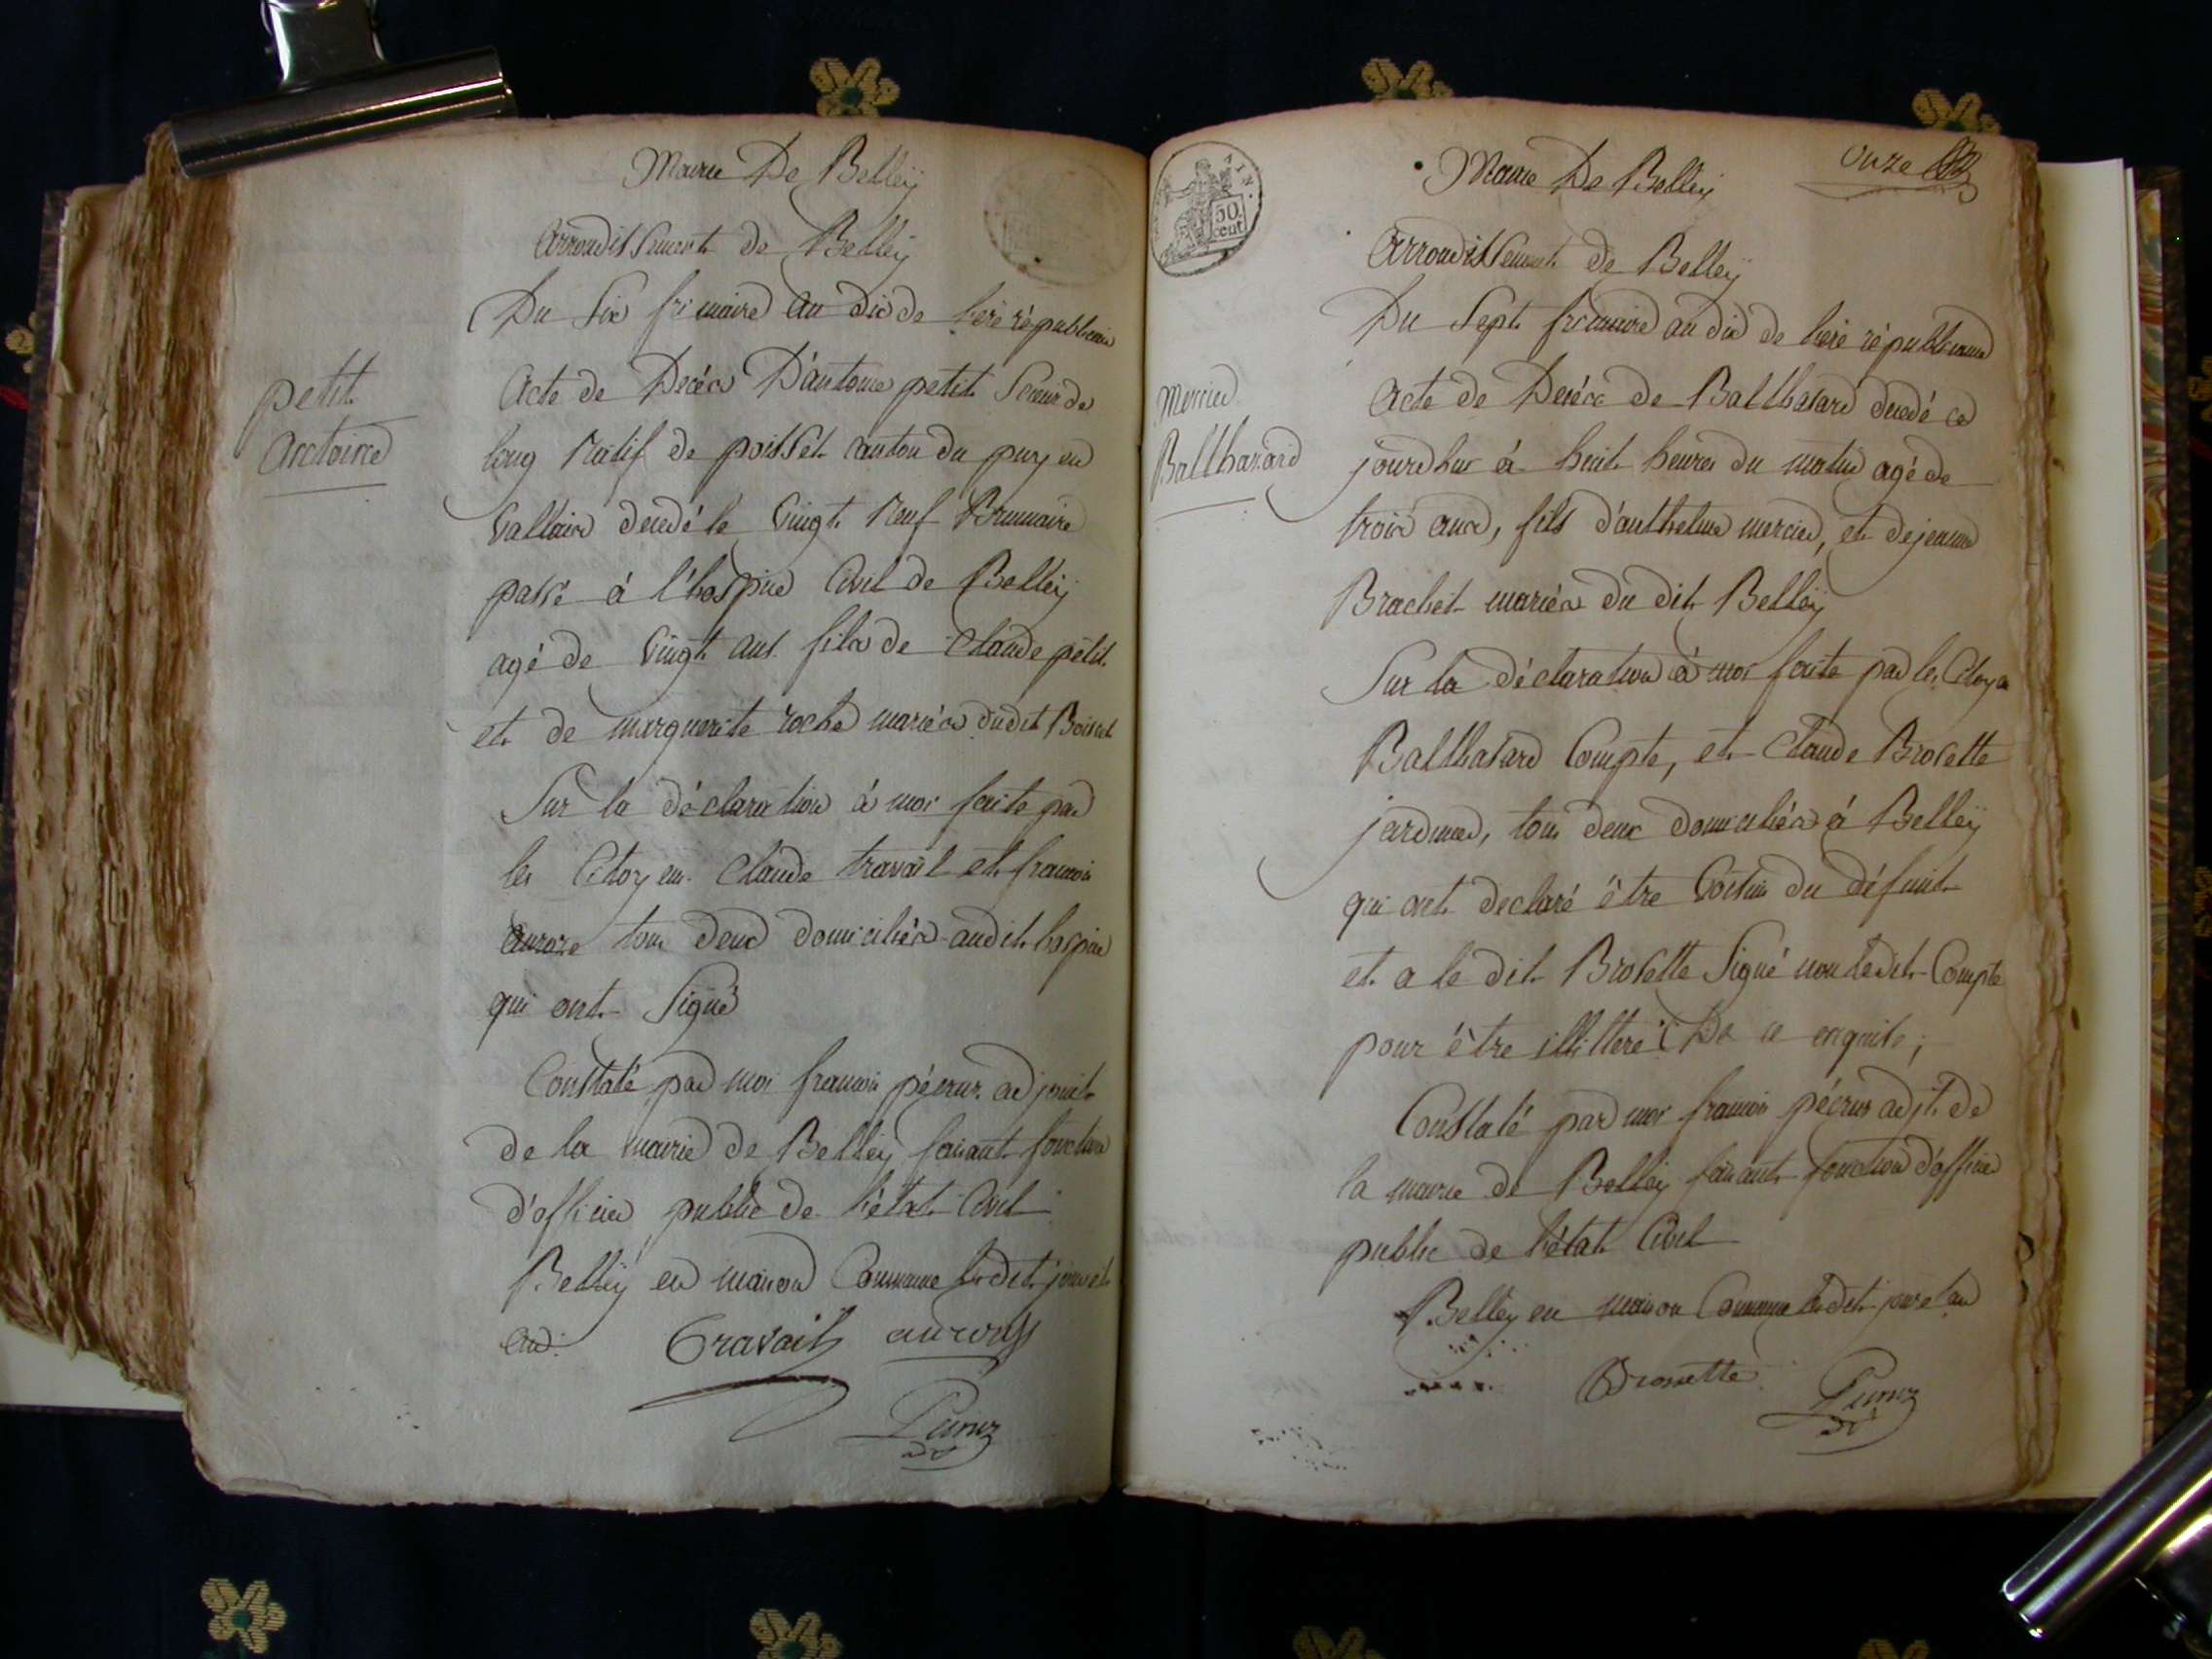 Mairie De Belleÿ
arrondissement de Belleÿ
Du Six frimaire an dix de l'ere républicaine
petit
antoine
Acte de Décés D'antoine petit Scieur de
long Natif de poisset canton du puy en
vallaix decedé le Vingt Neuf Brumaire
passé à l'hospice Civil de Belleÿ
agé de Vingt ans fils de Claude petit
et de marguerite roche mariés dudit Boisset
Sur la déclaration à moi faite par
les Citoyens Claude travail et francois
aurore tous deux domiciliés audit hospice
qui ont Signé
Constaté par moi francois pécrus adjoint
de la mairie de Belleÿ faisant fonction
d'officier public de l'état Civil
Belleÿ en maison Commune ledit jour et
an.
Travail
Mairie De Belleÿ
onze
AIN.
50 cent
arrondissement de Belleÿ
Du Sept frimaire an dix de l'ere républicaine
mercier
Balthazard
Acte de Decés de Balthasard decedé ce
jourdhui à huit heures du matin agé de
trois ans, fils d'anthelme mercier, et de jeanne
Brachet mariés du dit Belleÿ
Sur la déclaration à moi faite par les Citoyens
Balthasard Compte, et Claude Brosette
jardinier, tous deux domiciliés à Belleÿ
qui ont declaré être Voisins du défunt
et a le dit Brosette Signé non ledit Compte
pour être illitteré De ce enquits;
Constaté par moi francois pécrus adjt. de
la mairie de Belleÿ faisant fonction d'officier
public de l'état Civil
Belleÿ en maison Commune ledit jour et an
Brossette